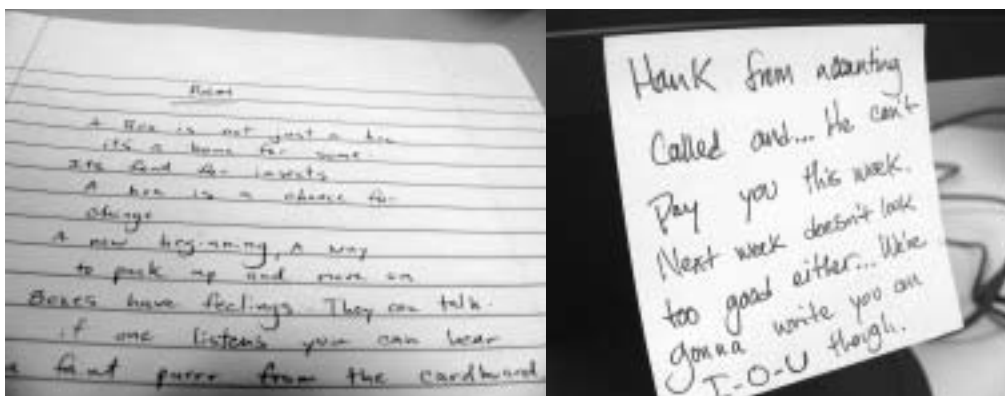 Poem
A Box is not just a box
it's a home for some.
Its food for insects
A box is a chance for
change
A new beginning, A way
to pack up and move on
Boxes have feelings. They can talk.
if one listens you can hear
a faint purr from the cardboard
Hank from accounting
Called and... He can't
Pay you this week.
Next week doesn't look
too good either... We're
gonna write you an
I-O-U though.